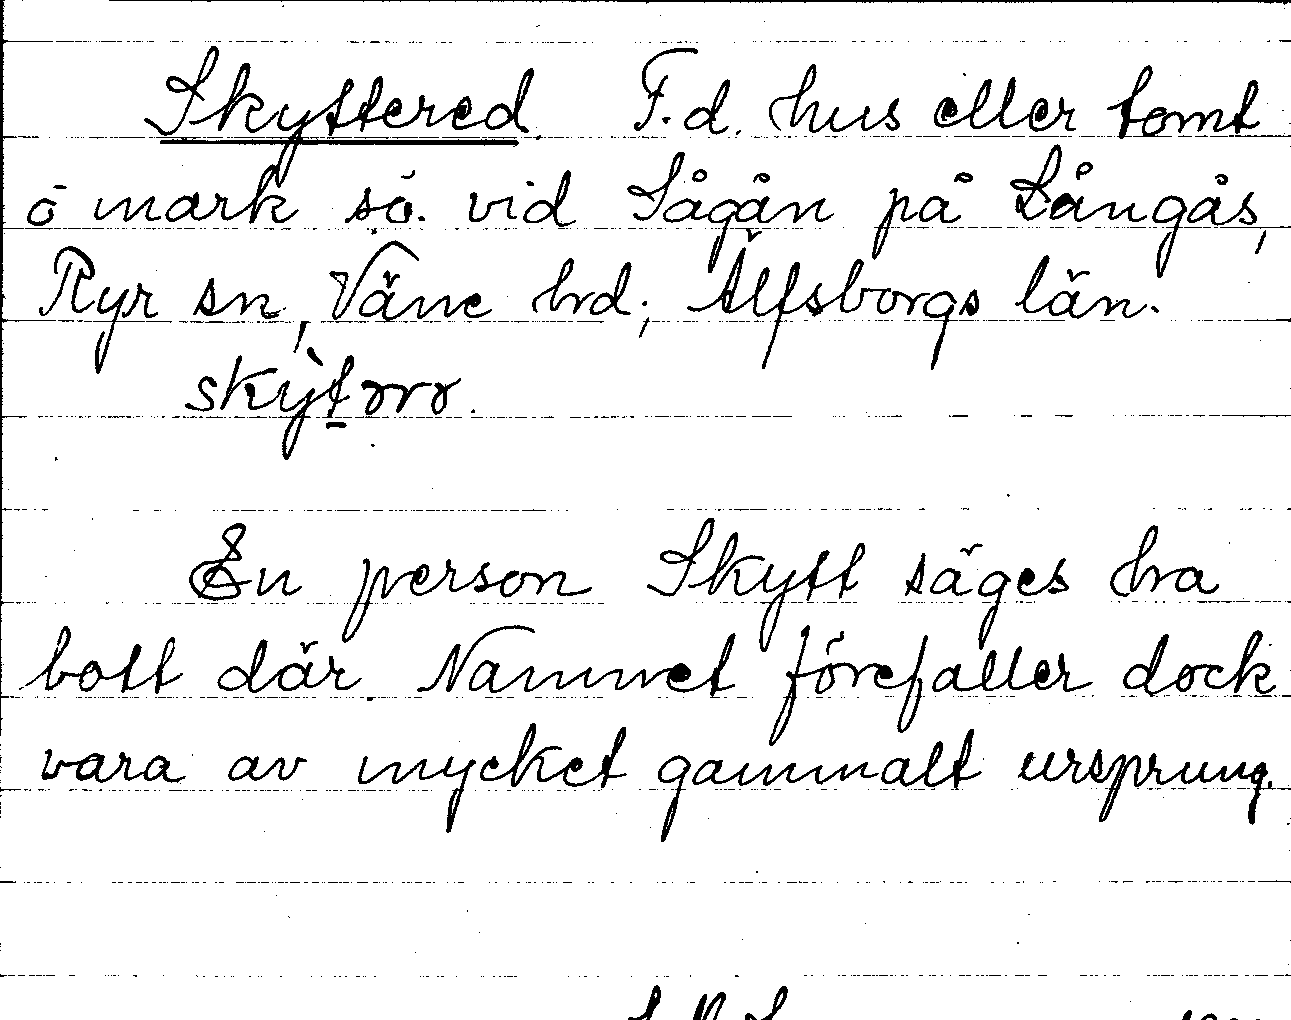 Skyttered. F.d. hus eller tomt
ö mark sö. vid Sågån på Långås,
Ryr sn, Väne hrd; Älfsborgs län.
En person Skytt säges ha
bott där. Namnet förefaller dock
vara av mycket gammalt ursprung.